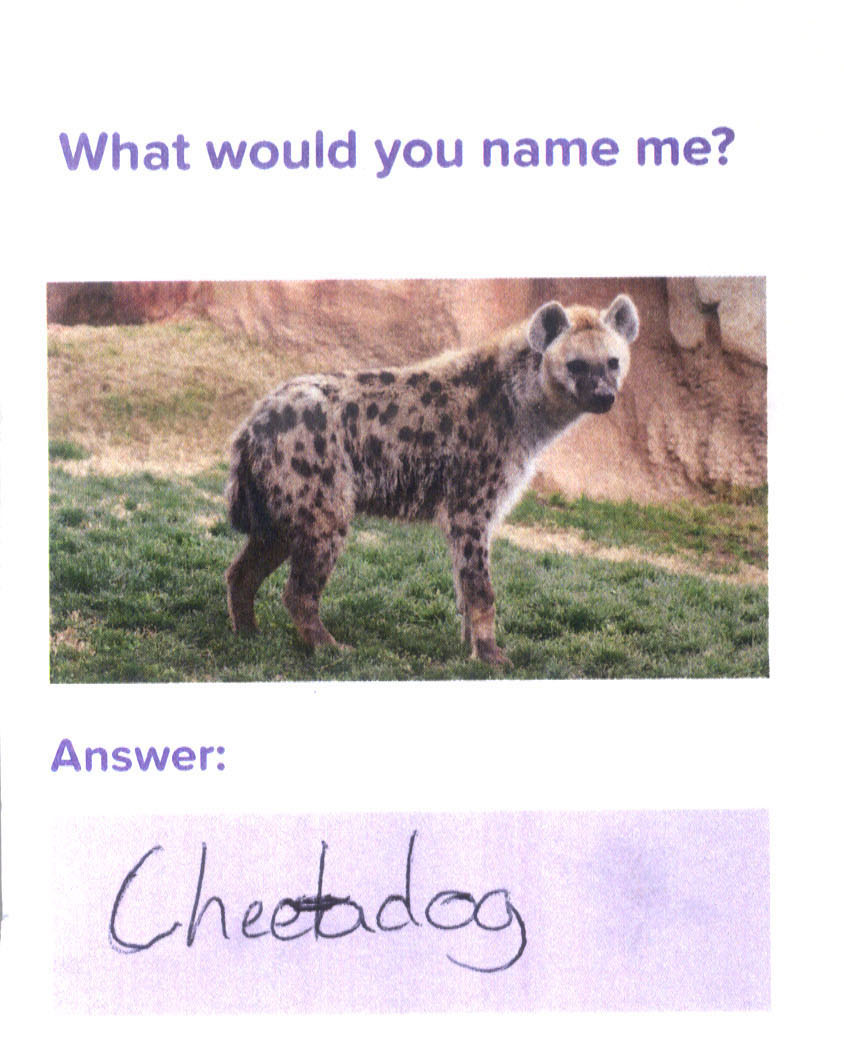 What would you name me?
Answer:
Cheetadog